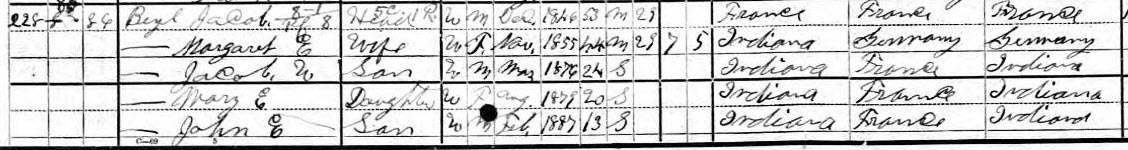 228 84 Beyl Jacob Head W M Dec 1846 53 M 29 France France France
— Margaret E Wife W F Nov 1855 44 M 29 7 5 Indiana Germany Germany
— Jacob W Son W M Mar 1876 24 S Indiana France Indiana
— Mary E Daughter W F Aug 1879 20 S Indiana France Indiana
— John E Son W M Feb 1887 13 S Indiana France Indiana